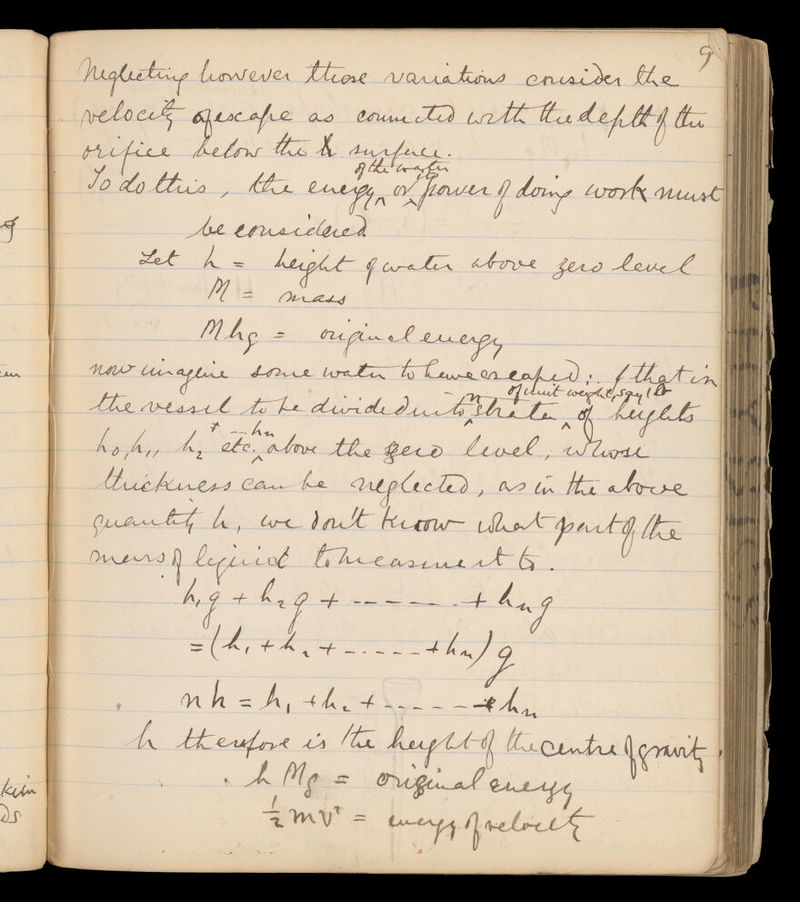 9
Neglecting however these variations consider the
velocity of escape as connected with the depth of the
orifice below the h surface.
of the water its
To do this, the energy, or power of doing work must
be considered
Let h = height of water above zero level
M = mass
Mhg = original energy
now imagine some water to have escaped: (that in
of unit weight, say 1 lb
the vessel to be divided into n strata of heights
--- hn
h0, h1, h2 etc. above the zero level, whose
thickness can be neglected, as in the above
quantity h, we don't know what part of the
mass of liquid to measure it to.
h1g + h2g + ------- + hng
= (h1 + h2 + ------ + hn) g
nh = h1 + h2 + ------ + hn
h therefore is the height of the centre of gravity.
h Mg = original energy
½ mv² = energy of velocity